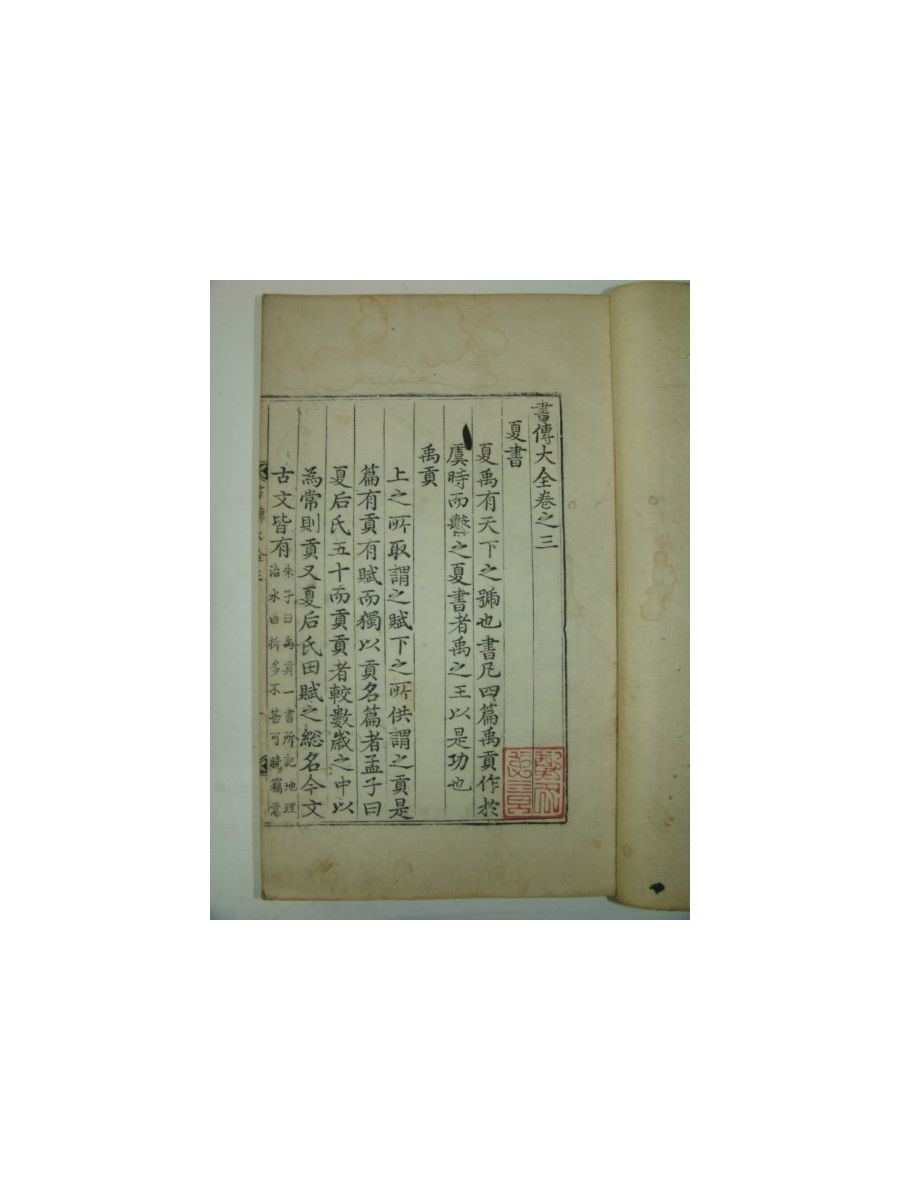 書傳大全卷之三
夏書
夏禹有天下之號也書凡四篇禹貢作於
虞時而繫之夏書者禹之王以是功也
禹貢
上之所取謂之賦下之所供謂之貢是
篇有貢有賦而獨以貢名篇者孟子曰
夏后氏五十而貢貢者較數歲之中以
為常則貢又夏后氏田賦之總名今文
古文皆有
朱子曰禹貢一書所記地理
治水曲折多不甚可曉竊意